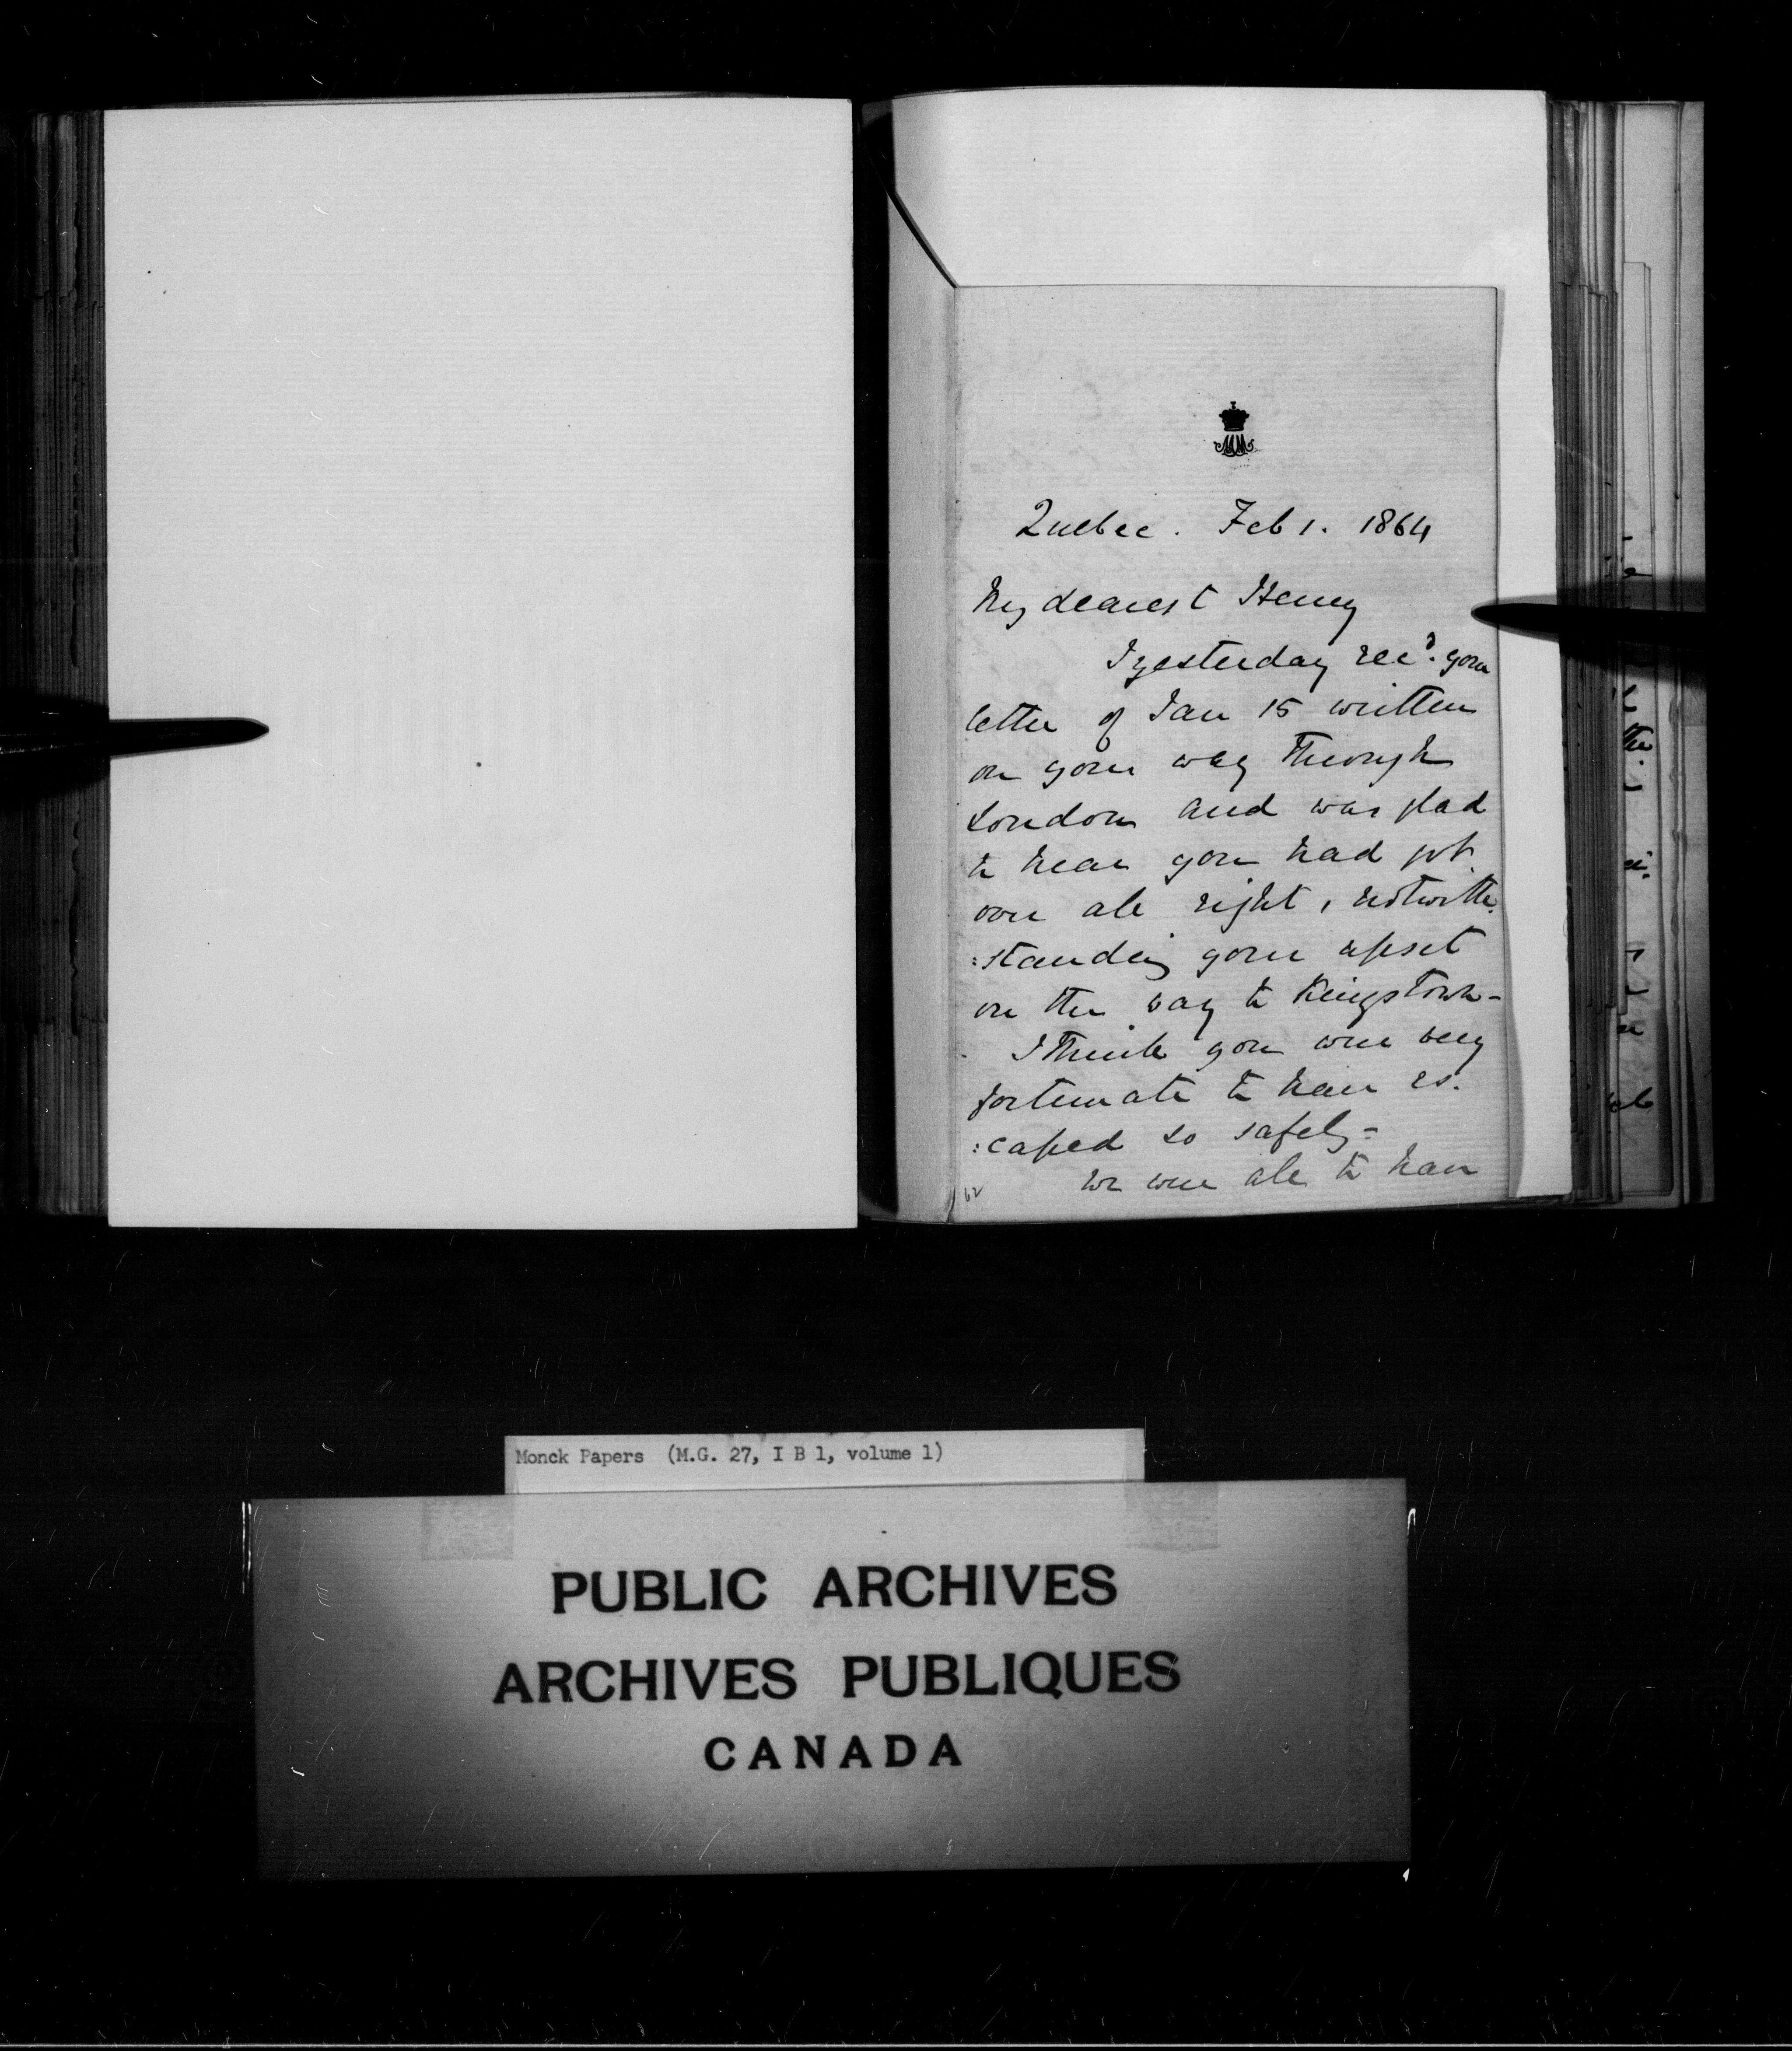 Quebec. Feb 1. 1864
My dearest Henry
I yesterday recd. your
letter of Jan 15 written
on your way through
London and was glad
to hear you had got
over all right, notwith
:standing your upset
on the way to Kingstown-
I think you were very
fortunate to have es.
:caped so safely-
We were all to have
62
Monck Papers (M.G. 27, I B 1, volume 1)
PUBLIC ARCHIVES
ARCHIVES PUBLIQUES
CANADA